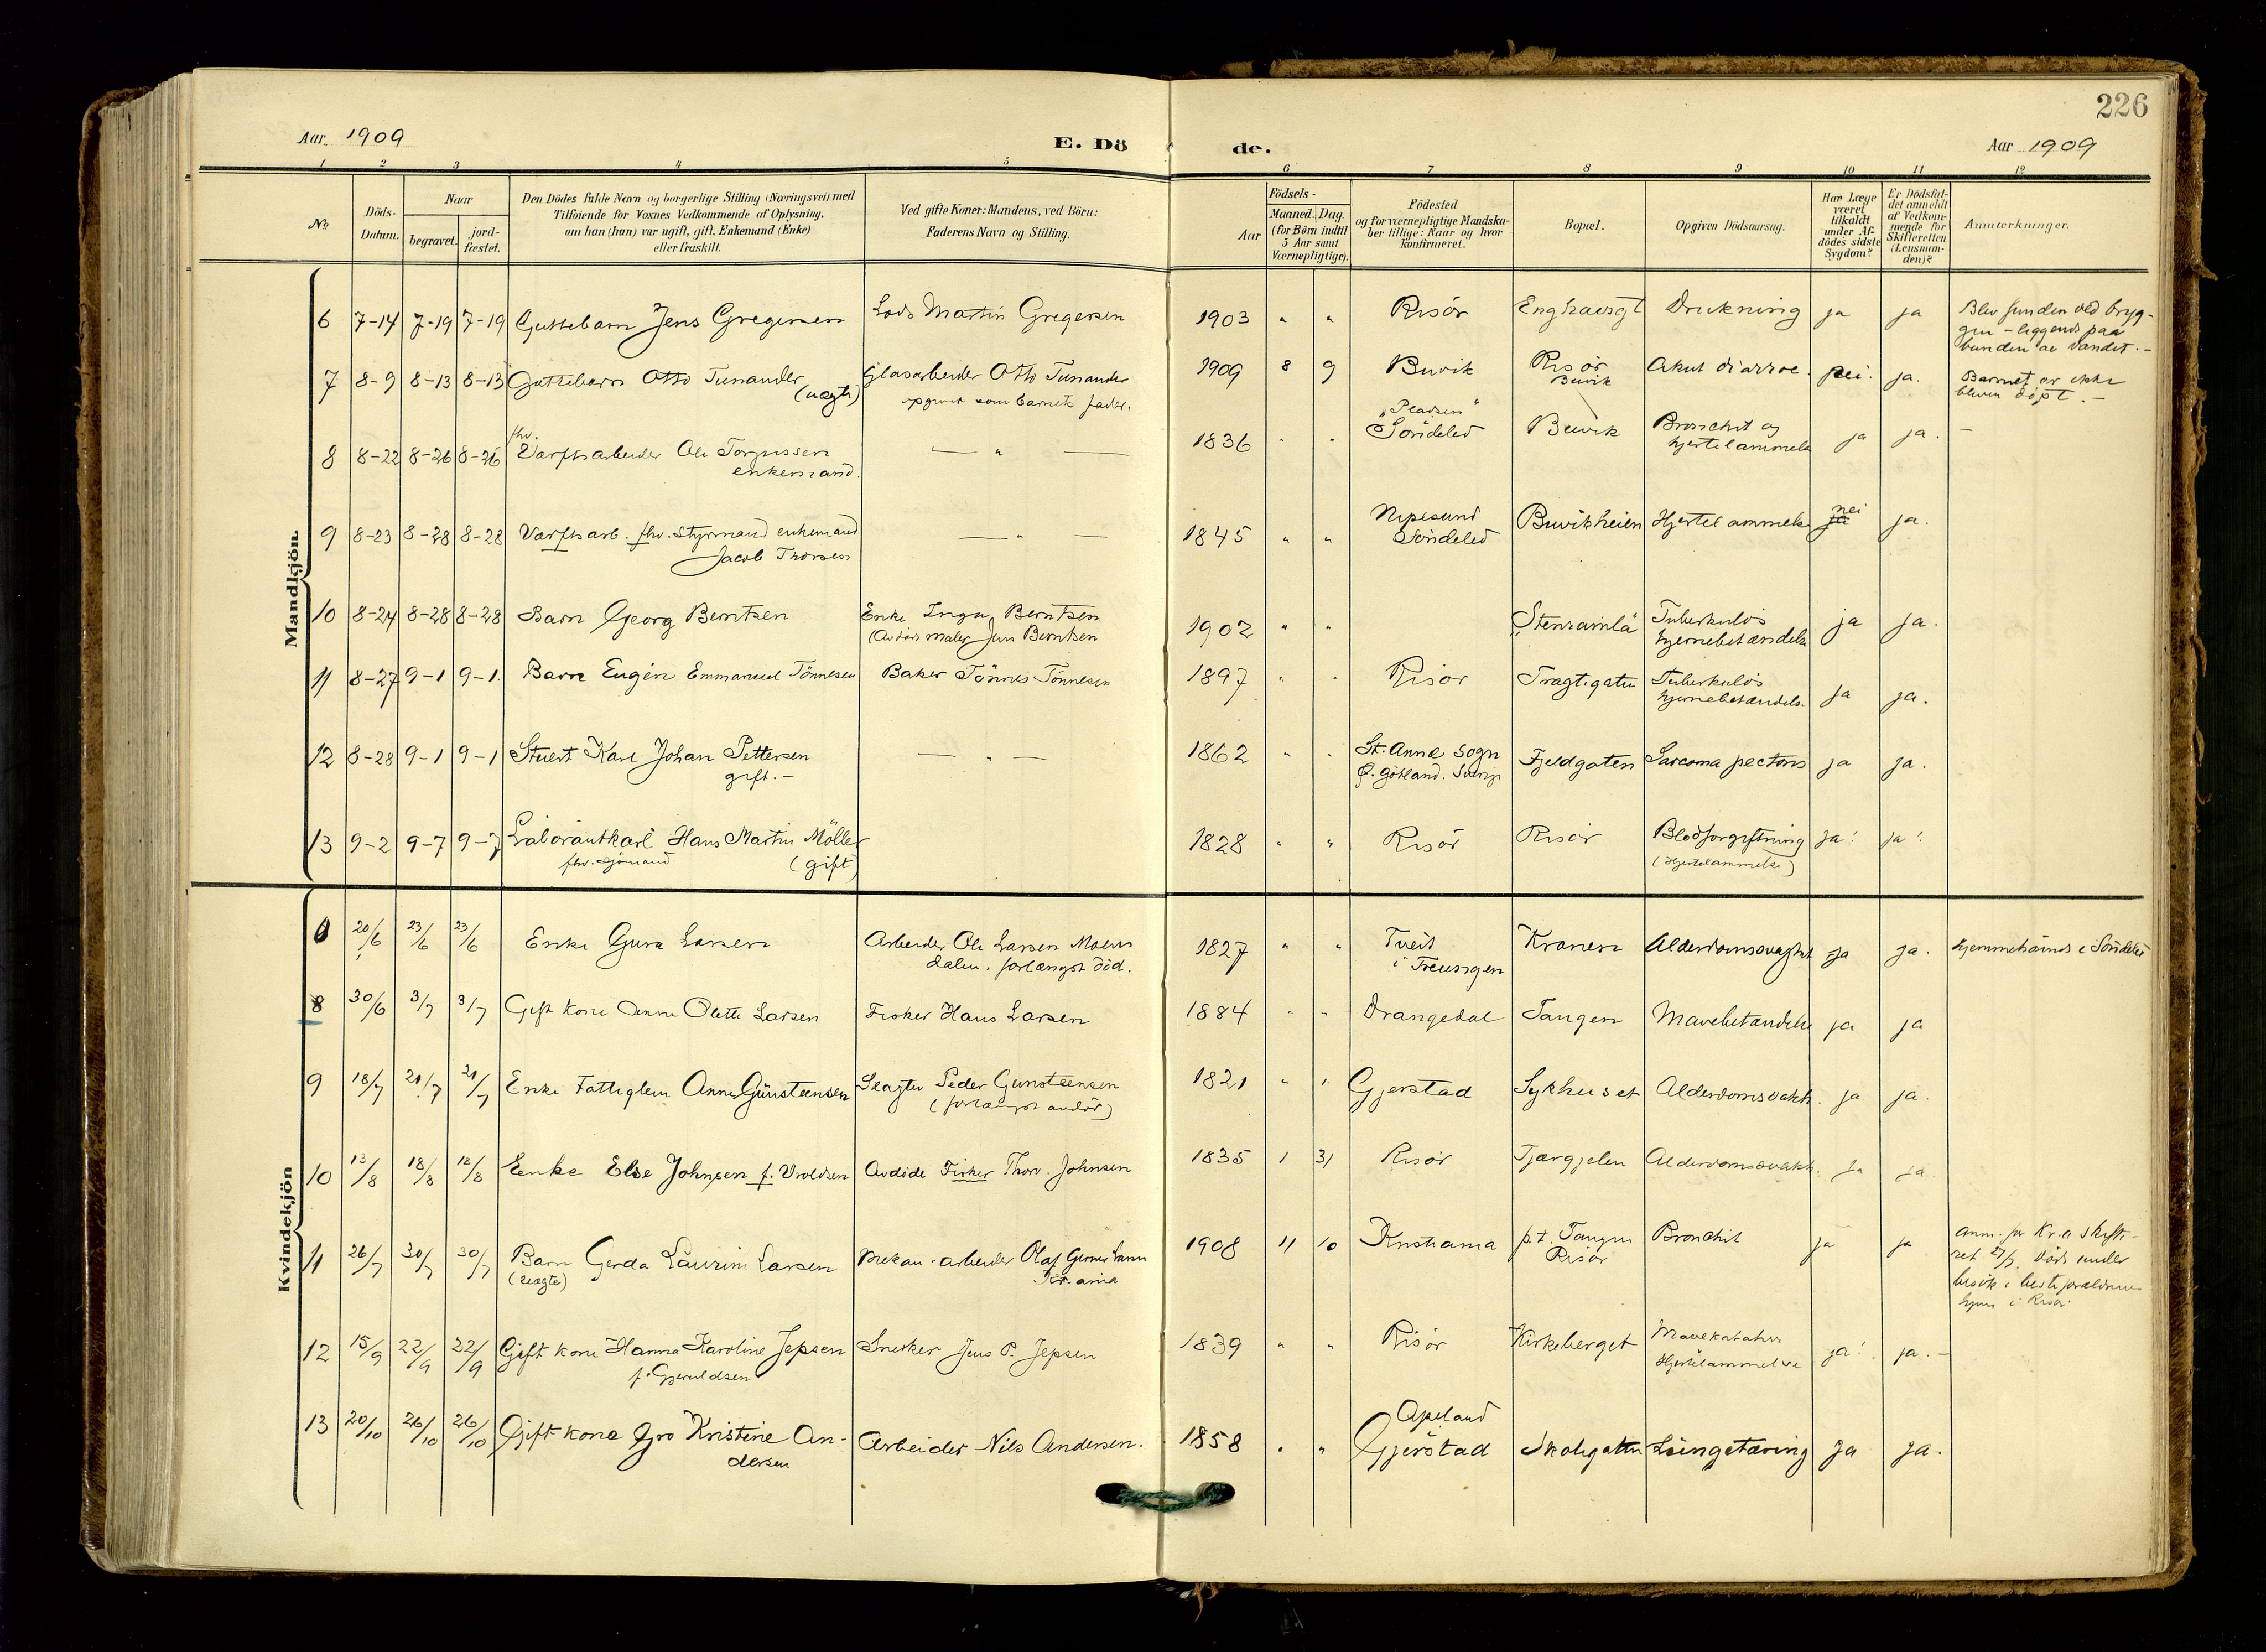 226
Aar. 1909
E. Dö
de.
Aar 1909
1 2 3 4 5 6 7 8 9 10 11 12
No
Döds-
Datum.
Naar
begravet.
jord-
fæstet.
Den Dödes fulde Navn og borgerlige Stilling (Næringsvei) med
Tilföiende for Voxnes Vedkommende af Oplysning,
om han (hun) var ugift, gift, Enkemand (Enke)
eller fraskilt.
Ved gifte Koner: Mandens, ved Börn:
Faderens Navn og Stilling.
Födsels-
Aar
Maaned. Dag.
(for Börn indtil
5 Aar samt
Værnepligtige).
Födested
og for værnepligtige Mandska-
ber tillige: Naar og hvor
konfirmeret.
Bopæl.
Opgiven Dödsaarsag.
Har Læge
været
tilkaldt
under Af-
dödes sidste
Sygdom?
Er Dödsfal-
det anmeldt
af Vedkom-
mende for
Skifteretten
(Lensman-
den)?
Anmærkninger.
Mandkjön.
6 7-14 7-19 7-19 Guttebarn Jens Gregersen Lods Martin Gregersen 1903 " " Risör Enghavsgt Drukning ja ja Blev funden ved bryg-
gen - liggende paa
bunden av vandet. -
7 8-9 8-13 8-13 Guttebarn Otto Tusander
(uægte)
Glasarbeider Otto Tusander
opgivet som barnets fader.
1909 8 9 Buvik Risör
Buvik
Akut diarroe. nei. ja. Barnet er ikke
bleven döpt. -
8 8-22 8-26 8-26 fhv.
Værftsarbeider Ole Torjussen
enkemand.
— " —
1836 " " "Pladsen"
Söndeled
Buvik Bronchit og
hjertelammelse
ja ja. -
9 8-23 8-28 8-28 Værftsarb. fhv. styrmand enkemand
Jacob Thorsen
— " —
1845 " " Nipesund
Söndeled
Buvikheien Hjertelammelse nei
ja
ja.
10 8-24 8-28 8-28 Barn Georg Berntsen Enke Inga Berntsen
(Avdöde maler Jens Berntsen
1902 " " "Stensamla" Tuberkulös
hjernebetændelse
ja ja.
11 8-27 9-1 9-1. Barn Eugén Emmanuel Tönnesen Baker Tönnes Tönnesen 1897 " " Risör Tragtigaten Tuberkulös
hjernebetændels.
ja ja.
12 8-28 9-1 9-1 Stuert Karl Johan Pettersen
gift. -
— " —
1862 " " St. Anna Sogn
Ø. Götland. Sverige
Fjeldgaten Sarcoma pectoris ja ja.
13 9-2 9-7 9-7 Laborantkarl Hans Martin Möller
fhv. sjömand (gift)
1828 " " Risör Risör Blodforgiftning
(Hjertelammelse)
ja! ja!
Kvindekjön
6 20/6 23/6 23/6 Enke Gura Larsen Arbeider Ole Larsen Moens
dalen. forlængst död.
1827 " " Tveit
i Treungen
Kranen Alderdomssvaghet ja ja. hjemmehörende i Söndeled
8 30/6 3/7 3/7 Gift kone Anne Olette Larsen Fisker Hans Larsen 1884 " " Drangedal Tangen Mavebetændelse ja ja
9 18/7 21/7 21/7 Enke Fattiglem Anne Gunsteensen Slagter Peder Gunsteensen
(forlængst avdöd)
1821 " " Gjerstad Sykhuset Alderdomssvakh. ja ja.
10 13/8 18/8 18/8 Enke Else Johnsen f. Vroldsen Avdöde Fisker Thorv. Johnsen 1835 1 31 Risör Tjærgjelen Alderdomssvakh. ja ja.
11 26/7 30/7 30/7 Barn Gerda Laurine Larsen
(uægte)
Mekan. arbeider Olaf Larsen
Kr.ania
1908 11 10 Kristiania p.t. Tangen
Risör
Bronchit ja ja anm. for Kr.a Skifte-
ret 27/7. Död under
besök i besteforældrenes
hjem i Risör.
12 15/9 22/9 22/9 Gift kone Hanna Karoline Jepsen
f. Gjeruldsen
Snekker Jens P. Jepsen 1839 " " Risör Kirkeberget Mavekatarh
Hjertelammelse
ja! ja. -
13 20/10 26/10 26/10 Gift kone Gro Kristine An-
dersen
Arbeider Nils Andersen. 1858 " " Apeland
Gjerstad
Skolegaten Lungetæring ja ja.